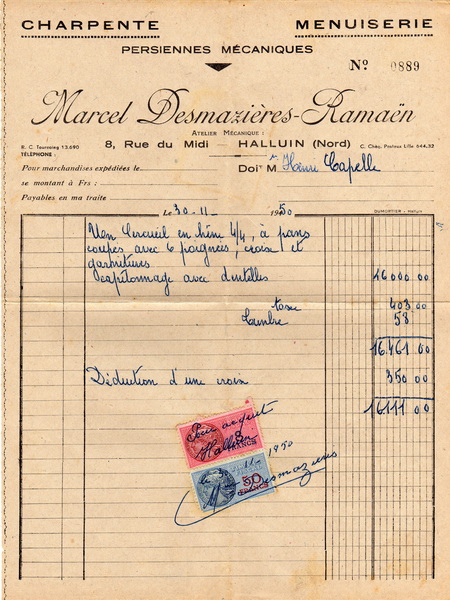 CHARPENTE MENUISERIE
PERSIENNES MÉCANIQUES
N° 0889
Marcel Desmazières-Ramaën
ATELIER MÉCANIQUE :
R. C. Tourcoing 13.690
TÉLÉPHONE :
8, Rue du Midi — HALLUIN (Nord)
C. Chèq. Postaux Lille 644.32
Pour marchandises expédiées le
Doit Mr Henri Capelle
se montant à Frs :
Payables en ma traite
Le 30-11- 1950
Un Cercueil en chêne 4/4, à pans
coupés avec 6 poignées, croix et
garnitures
capitonnage avec dentelles 16000 00
taxe 403 00
timbre 58
16.461 00
Déduction d'une croix 350 00
16111 00
Pour acquit
Halluin
8 FRANCS
11- 1950
50 FRANCS
Desmazières